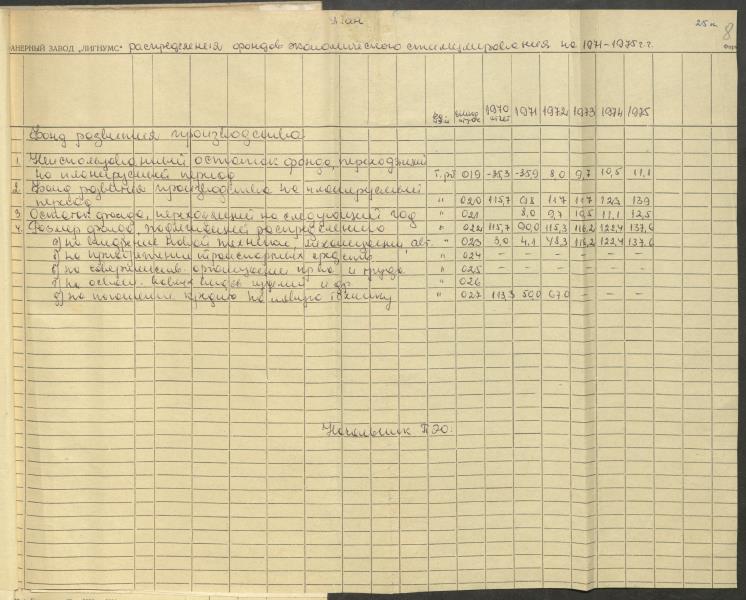 План
25 к
8
АНЕРНЫЙ ЗАВОД „ЛИГНУМС“ распределения фондов экономического стимулирования на 1971-1975 г.г.
1970 1971 1972 1973 1974 1975
отчет
Фонд развития производства
1 Неиспользованный остаток фонда, переходящий
на планируемый период т.р. 019 -35,3 -35,9 8,0 9,7 10,5 11,1
2 Фонд развития производства на планируемый
период " 020 115,7 118 117 117 123 139
3 Остаток фонда, переходящий на следующий год " 021 8,0 9,7 10,5 11,1 12,5
4. Размер фонда, подлежащий распределению " 022 115,7 90,0 115,3 116,2 122,4 137,6
а) на внедрение новой техники, механизации авт. " 023 3,0 4,1 48,3 116,2 122,4 137,6
б) на приобретение транспортных средств " 024 – – – – – –
в) на совершенств. организации пр-ва и труда " 025 – – – – – –
г) на освоен. новых видов изделий и др. " 026
д) на погашение кредита на новую технику " 027 113,3 50,0 67,0 – – –
Начальник ПЭО: